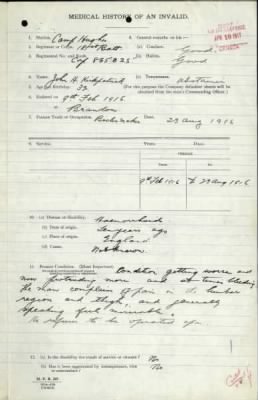 MEDICAL HISTORY OF AN INVALID.
1. Station. Camp Hughes
2. Regiment or Batt.
3. Regtl. No. and Rank. Cpl
4. Name. John H. Kirkpatrick
5. Age last Birthday. 33
6. Enlisted on 9th Feb 1916
at Brandon
7. Former Trade or Occupation.
8. General remarks on his:—
(a) Conduct. Good
(b) Habits. Good
(c) Temperance. abstainer
(For this purpose the Company defaulter sheets will be obtained from the man's Commanding Officer.)
Date 29 Aug 1916
9. Service.
PERIOD
FROM TO
9th Feb 1916 to 29 Aug 1916
10. (a) Disease or Disability. Haemorrhoids
(b) Date of origin. years ago
(c) Place of origin. England
(d) Cause. Not known
11. Present Condition. (Most Important). Condition getting worse and
now protruding more and at times bleeding
The man complains of pain in the lumbar
region and thighs and generally
speaking feels miserable.
He refuses to be operated upon.
12. (a) Is the disability the result of service or climate? No
(b) Has it been aggravated by intemperance, vice or misconduct? No